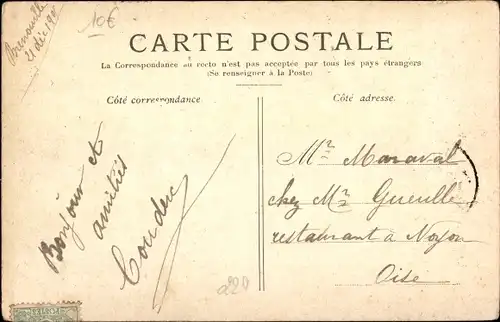 Brenouille
21 déc 190
10€
CARTE POSTALE
La Correspondance au recto n'est pas acceptée par tous les pays étrangers
(Se renseigner à la Poste)
Côté correspondance.
Bonjour et
amitiés
Couderc
Côté adresse.
Mr Maraval
chez Mr Gueullé
restaurant à Noyon
Oise